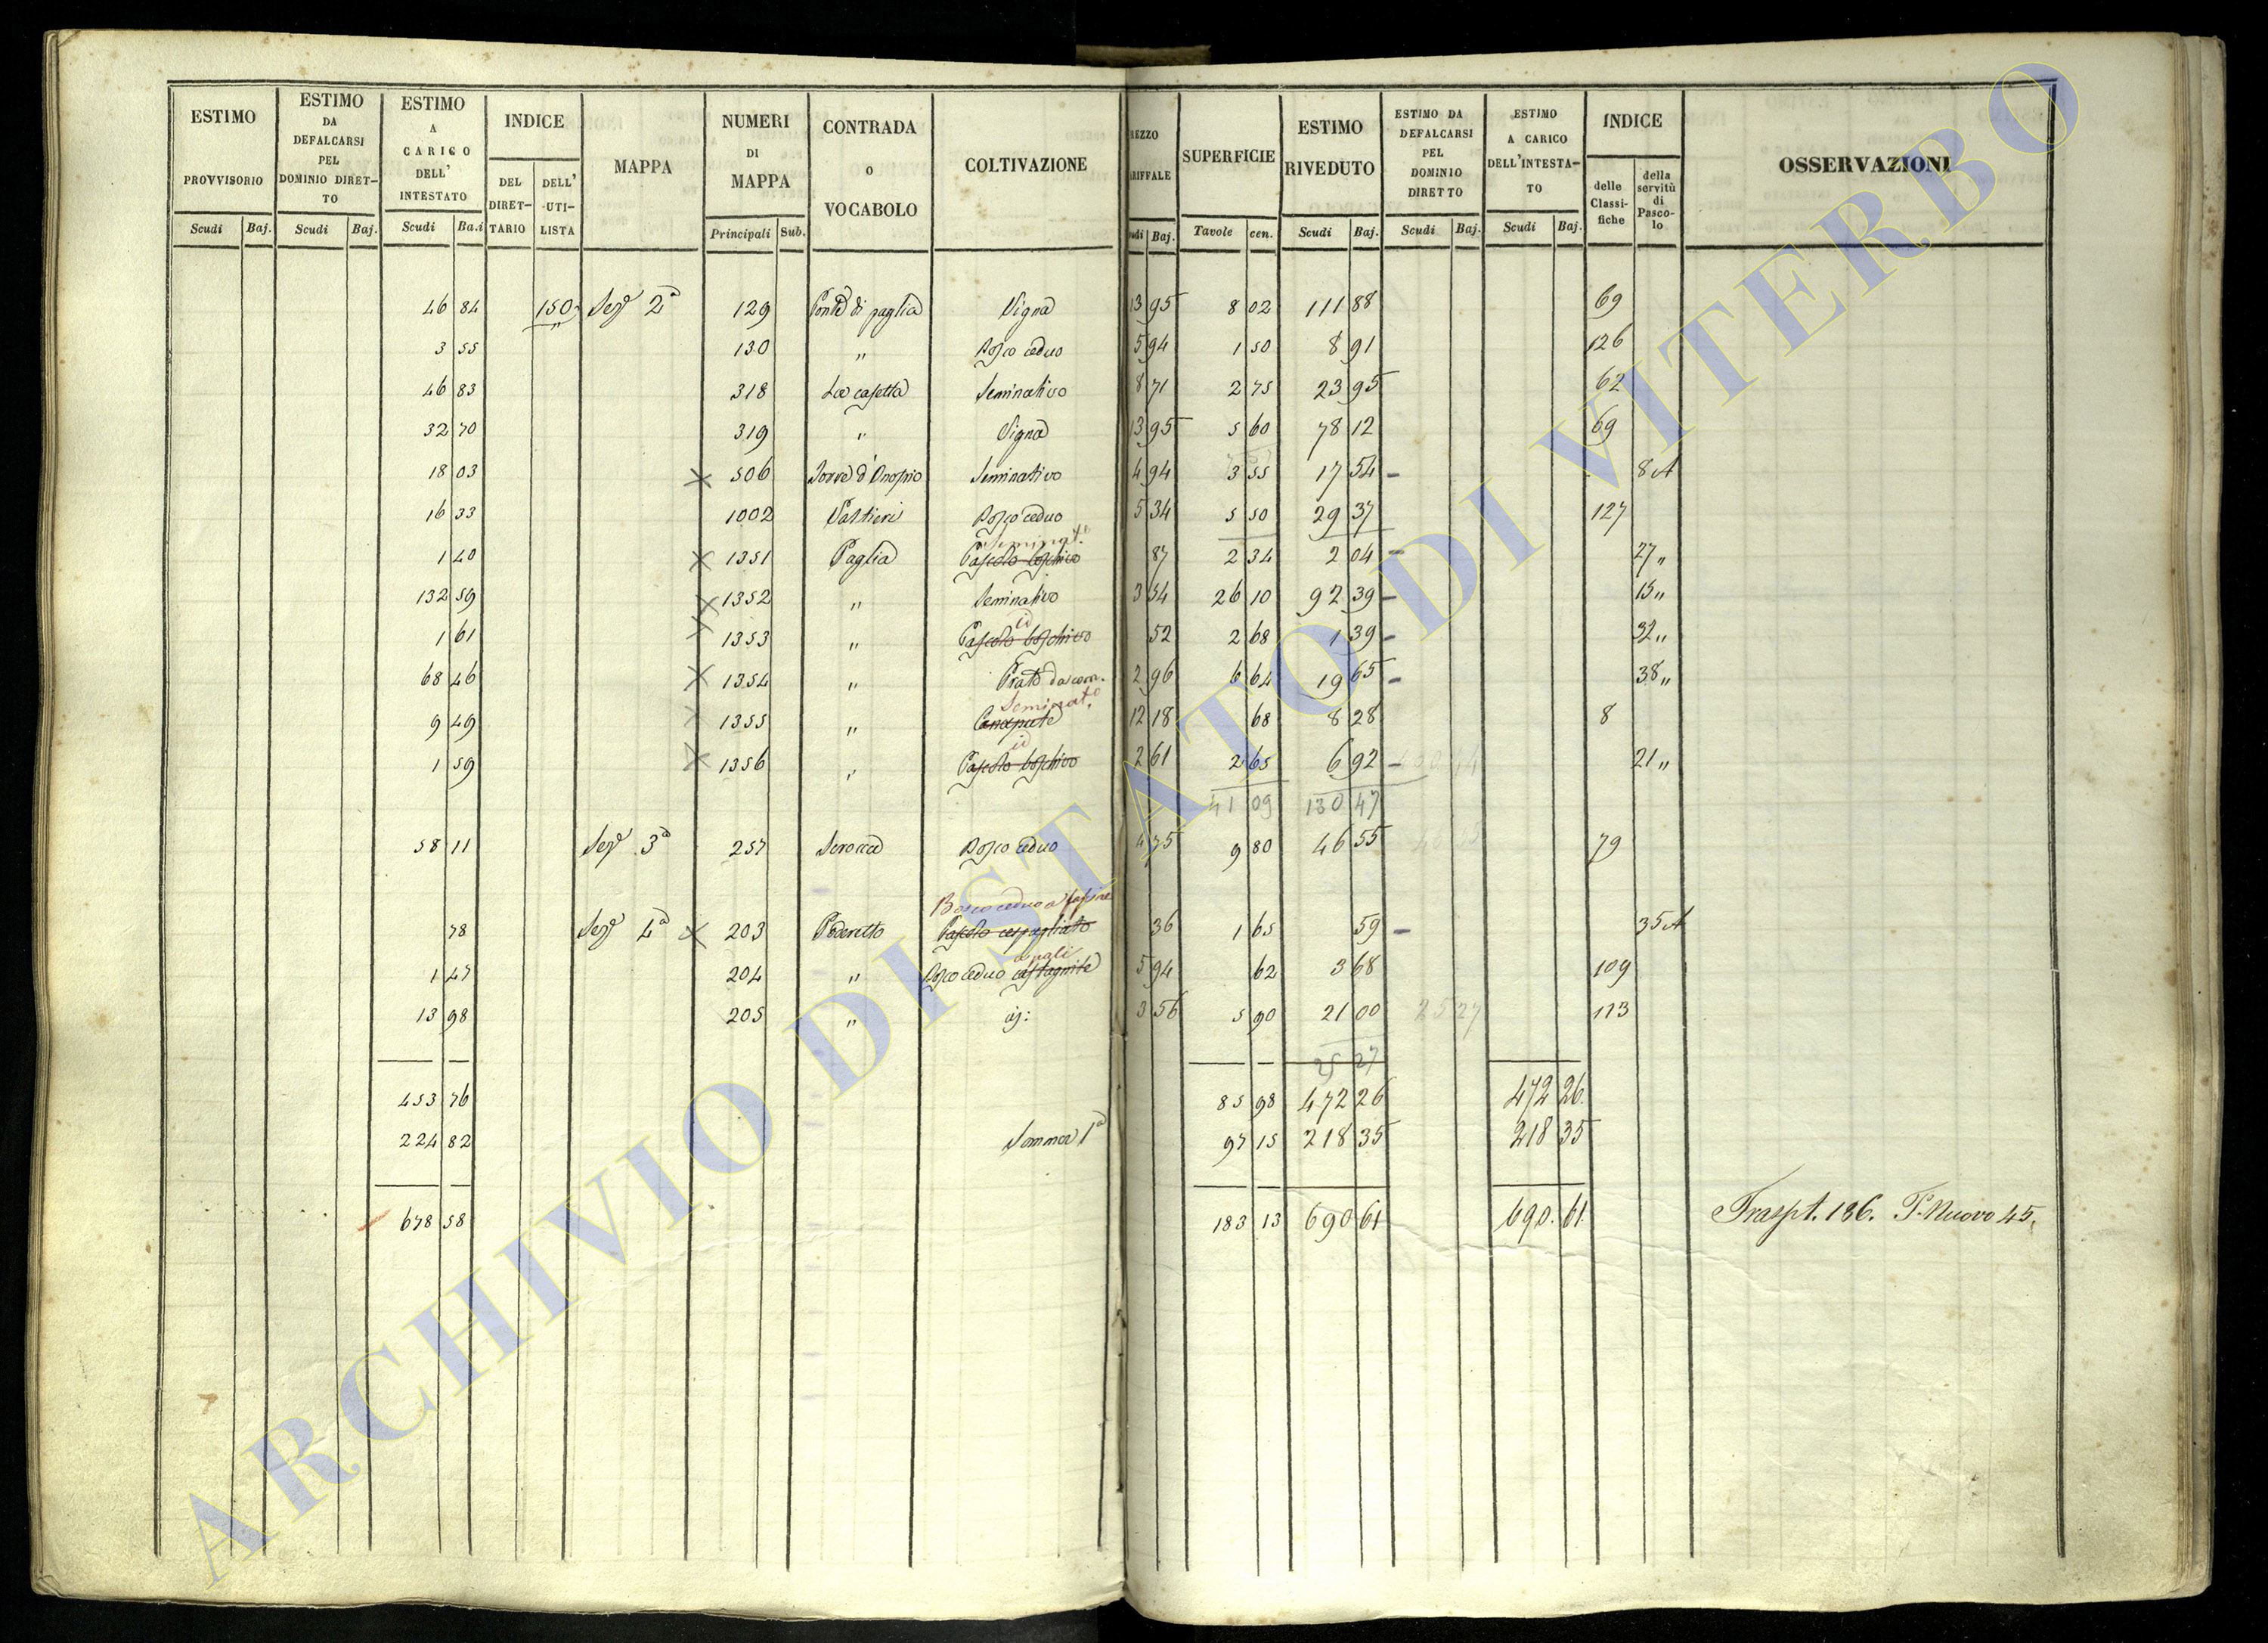 ESTIMO PROVVISORIO Scudi Baj.
ESTIMO DA DEFALCARSI PEL DOMINIO DIRET-TO Scudi Baj.
ESTIMO A CARICO DELL' INTESTATO Scudi Ba.i
INDICE DEL DIRET-TARIO DELL' UTI-LISTA
MAPPA
NUMERI DI MAPPA Principali Sub.
CONTRADA o VOCABOLO
COLTIVAZIONE
REZZO ARIFFALE udi Baj.
SUPERFICIE Tavole cen.
ESTIMO RIVEDUTO Scudi Baj.
ESTIMO DA DEFALCARSI PEL DOMINIO DIRETTO Scudi Baj.
ESTIMO A CARICO DELL'INTESTA-TO Scudi Baj.
INDICE delle Classi-fiche della servitù di Pasco-lo
OSSERVAZIONI
46 84 150 Sez.e 2a 129 Ponte di paglia Vigna 13 95 8 02 111 88 69
3 55 130 " Bosco ceduo 5 94 1 50 8 91 126
46 83 318 La casetta Seminativo 8 71 2 75 23 95 62
32 70 319 " Vigna 13 95 5 60 78 12 69
18 03 × 506 Torre d'Onofrio Seminativo 4 94 3 55 17 54 - 8 A
16 33 1002 Bosco ceduo 5 34 5 50 29 37 127
Seminat.o
1 40 × 1351 Paglia Pascolo boschivo 87 2 34 2 04 - 27 "
132 59 × 1352 " Seminativo 3 54 26 10 92 39 - 15 "
id
1 61 × 1353 " Pascolo boschivo 52 2 68 1 39 - 32 "
68 46 × 1354 " Prato da com. 2 96 6 64 19 65 - 38 "
Seminat.o
9 49 × 1355 " Canapule 12 18 68 8 28 8
id
1 59 × 1356 " Pascolo boschivo 2 61 2 65 6 92 - 21 "
41 09 130 47
58 11 Sez.e 3a 257 Scrocca Bosco ceduo 4 75 9 80 46 55 79
Bosco ceduo a fascine
78 Sez.e 4a × 203 Poderetto Pascolo cespugliato 36 1 65 59 - 35 A
a pali
1 47 204 " Bosco ceduo castagnile 5 94 62 3 68 109
13 98 205 " 3 56 5 90 21 00 25 27 113
25 27
453 76 85 98 472 26 472 26
224 82 Somma 1a 97 15 218 35 218 35
678 58 183 13 690 61 690. 61. Traspt. 186. P. Nuovo 45.
ARCHIVIO DI STATO DI VITERBO